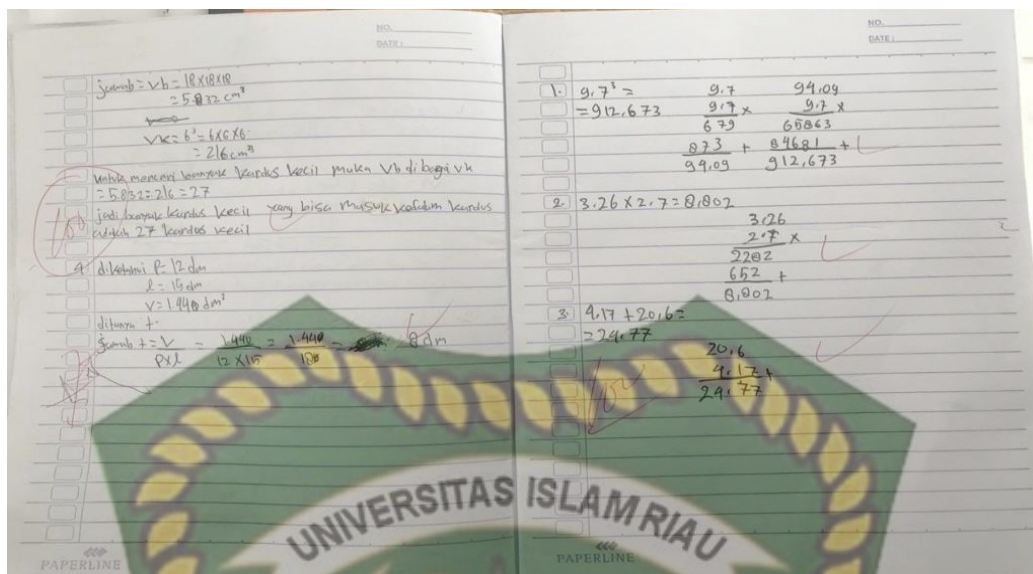 NO.
DATE:
jawab = Vb = 18x18x18
= 5.832 cm³
Vk = 6³ = 6x6x6
= 216 cm³
Untuk mencari banyak kardus kecil maka Vb dibagi Vk
= 5.832 : 216 = 27
jadi banyak kardus kecil yang bisa masuk kedalam kardus
adalah 27 kardus kecil
4 diketahui P = 12 dm
l = 15 dm
V = 1.440 dm³
ditanya t.
jawab t = V/pxl = 1.440/12 x 15 = 1.440/180 = 8 dm
PAPERLINE
NO.
DATE:
1. 9.7³ =
= 912,673
9.7
9.7 x
679
873 +
94.09
94.09
9.7 x
65863
84681 +
912,673
2. 3.26 x 2.7 = 8,802
3.26
2.7 x
2282
652 +
8,802
3. 4.17 + 20,6 =
= 24.77
20,6
4.17 +
24.77
PAPERLINE
UNIVERSITAS ISLAM RIAU